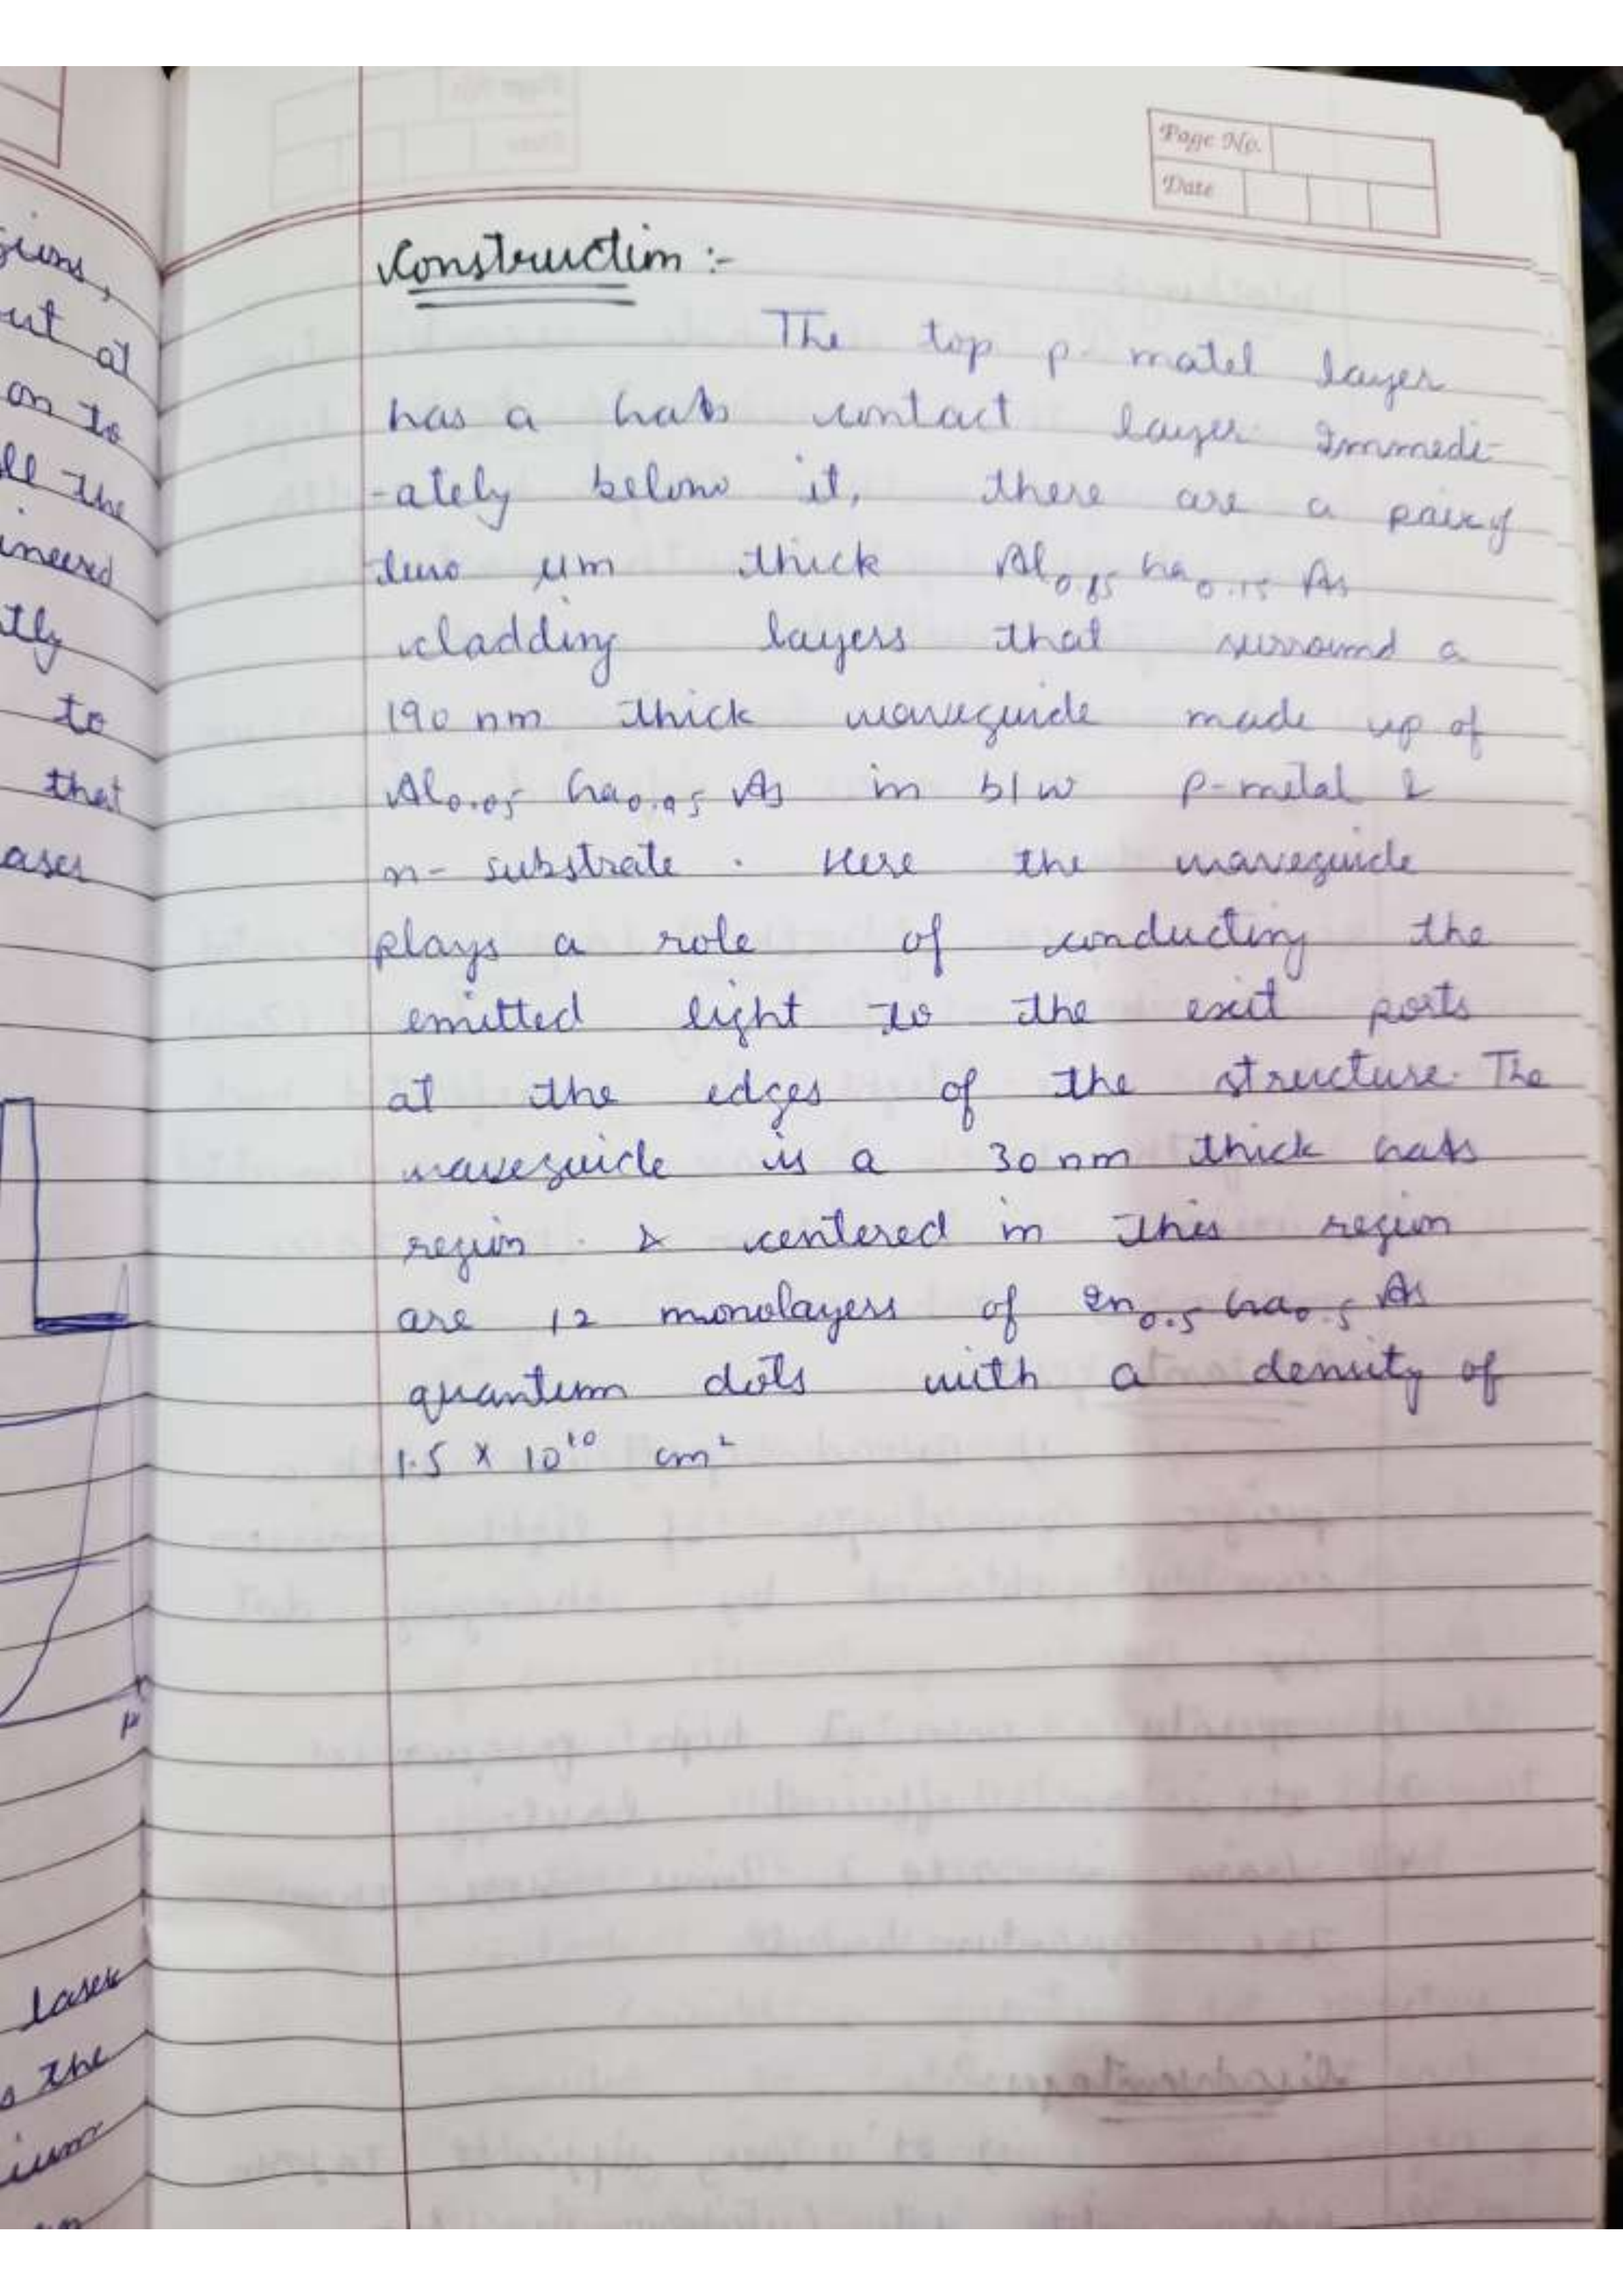 giuns,
ut at
on to
ll the
ineered
tly
to
that
ases
laser
s the
ium
Page No.
Date
Construction :-
The top p- matel layer
has a GaAs contact layer Immedi-
-ately below it, there are a pair of
two µm thick Al0.85 Ga0.15 As
cladding layers that surround a
190 nm thick waveguide made up of
Al0.05 Ga0.95 As in b/w p-metal &
n- substrate . Here the waveguide
plays a role of conducting the
emitted light to the exit ports
at the edges of the structure. The
waveguide is a 30 nm thick GaAs
region . & centered in this region
are 12 monolayers of In0.5 Ga0.5 As
quantum dots with a density of
1.5 x 10¹⁰ cm²